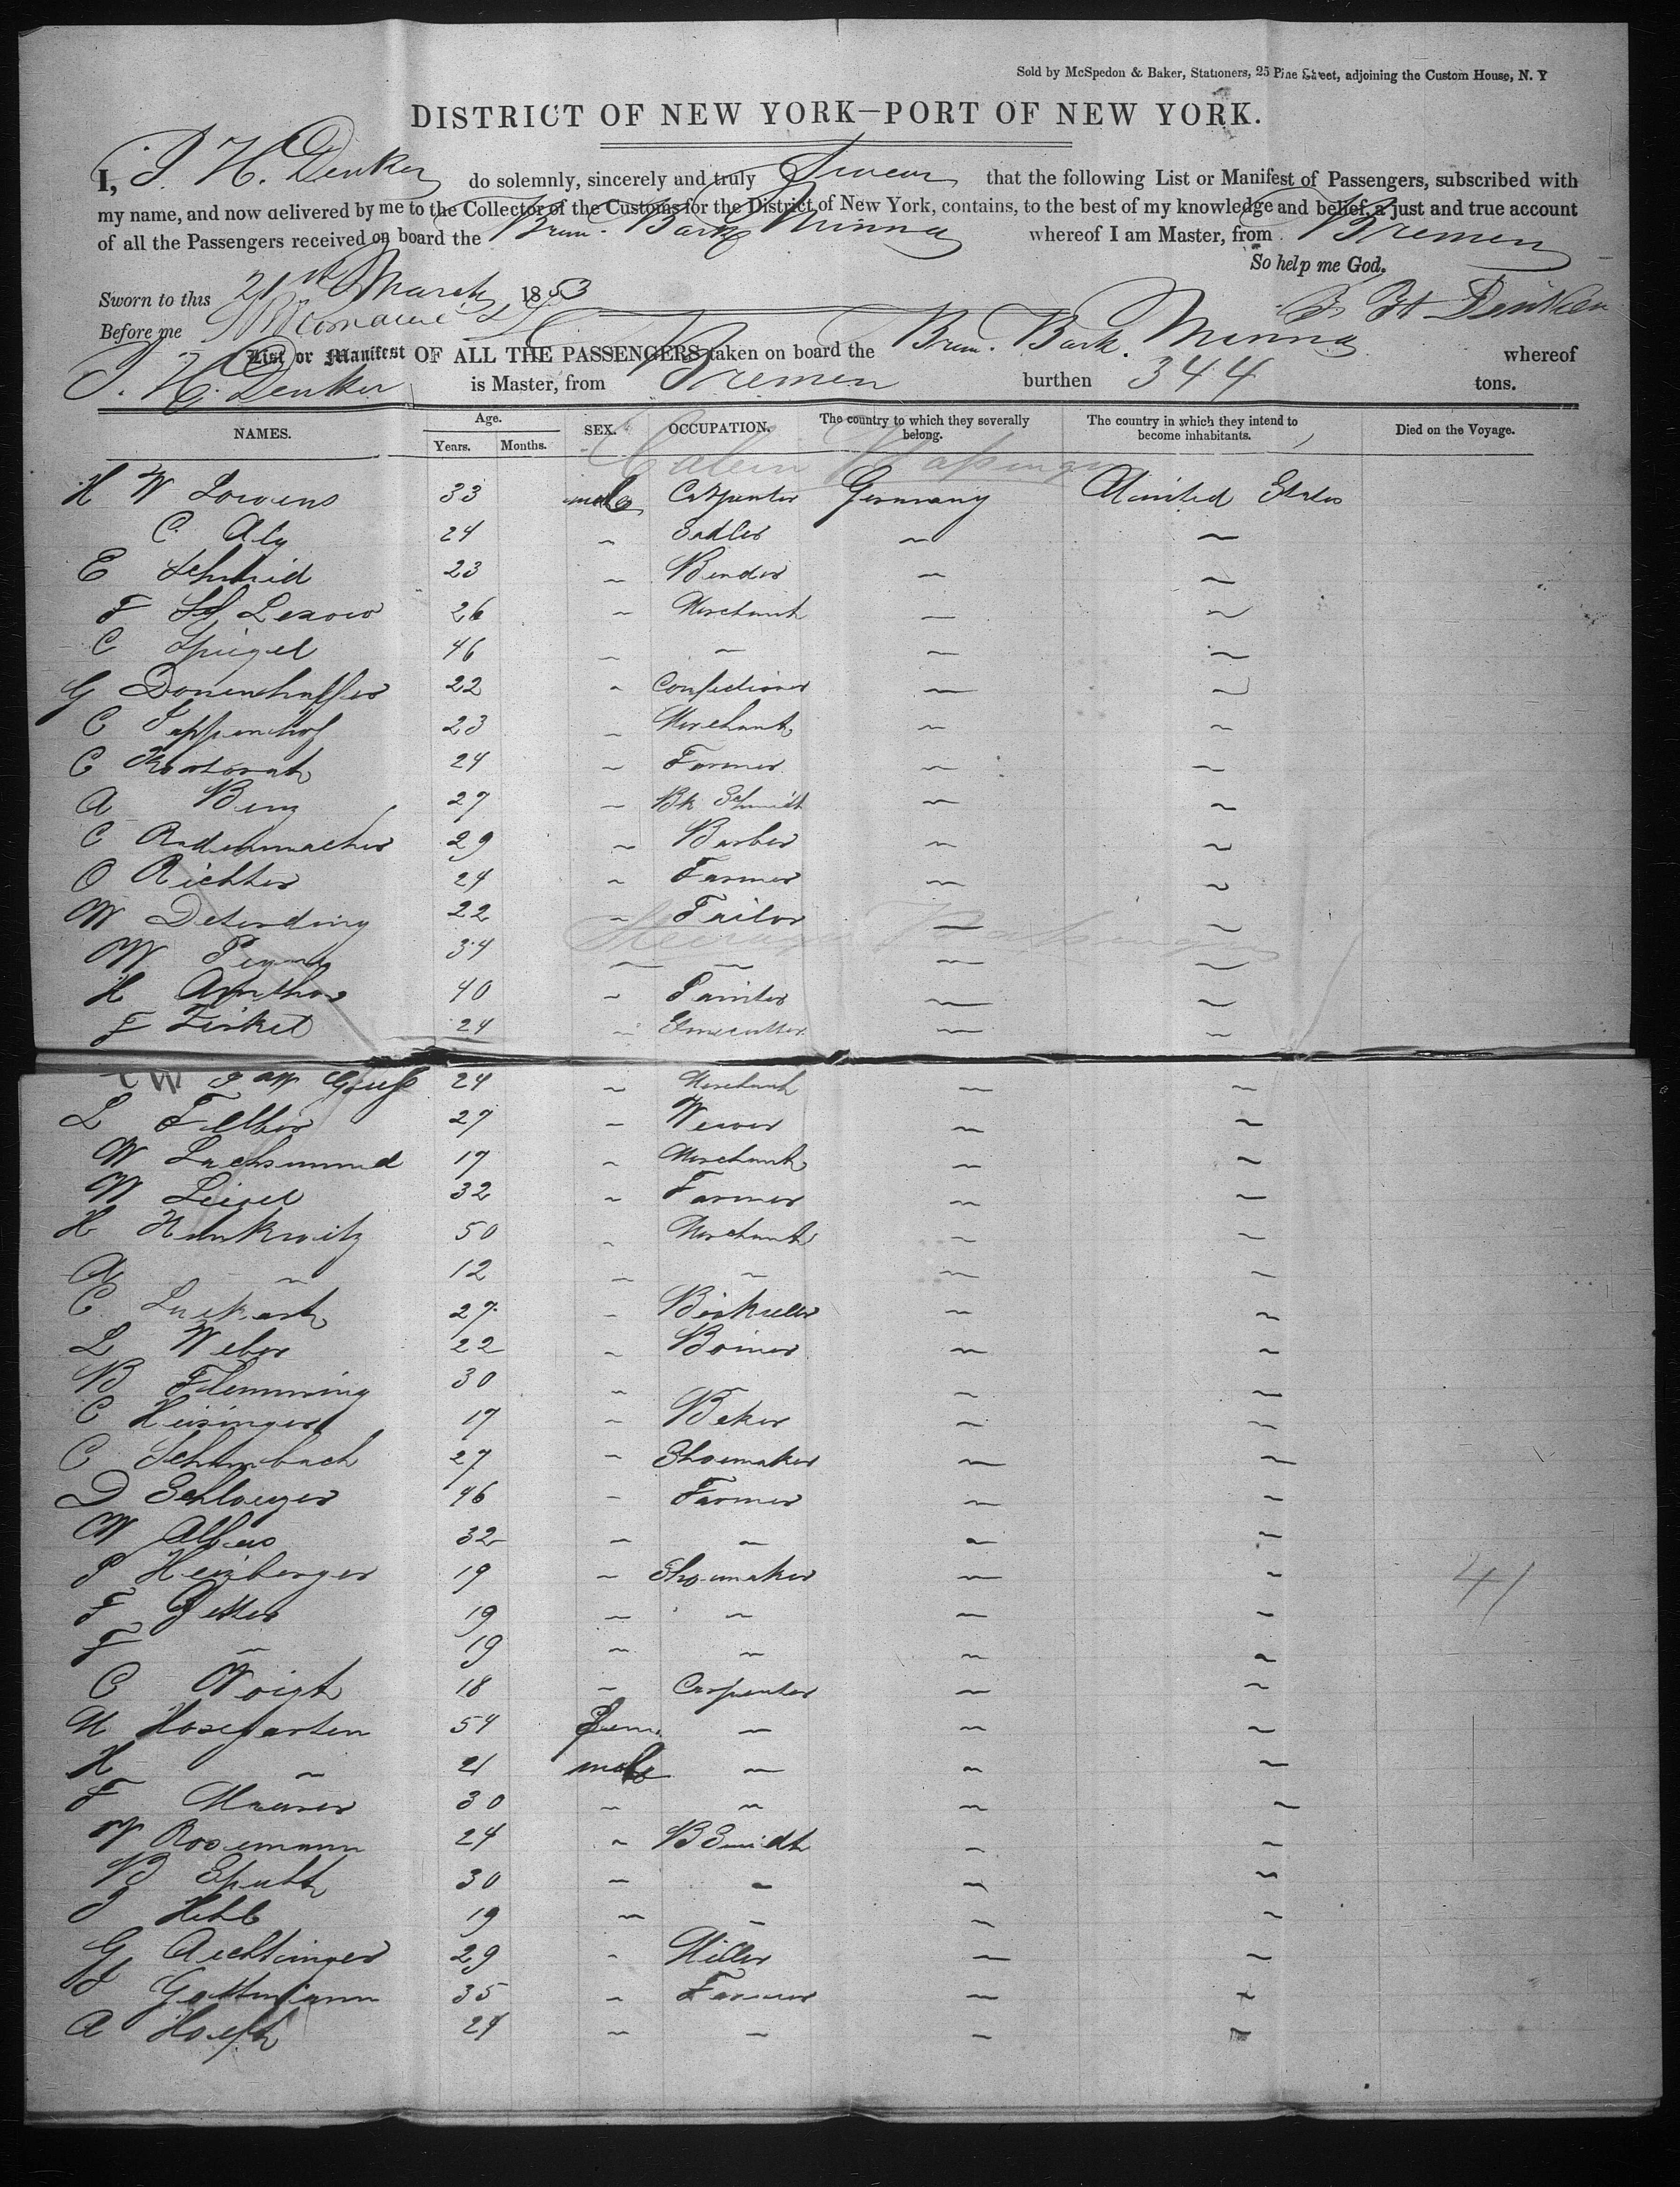 Sold by McSpedon & Baker, Stationers, 25 Pine Street, adjoining the Custom House, N. Y
DISTRICT OF NEW YORK—PORT OF NEW YORK.
I, J. H. Denker do solemnly, sincerely and truly Swear that the following List or Manifest of Passengers, subscribed with
my name, and now delivered by me to the Collector of the Customs for the District of New York, contains, to the best of my knowledge and belief, a just and true account
of all the Passengers received on board the Brem. Bark Minna whereof I am Master, from Bremen
So help me God.
Sworn to this 21st March 1853
J. H. Denker
Before me
List or Manifest OF ALL THE PASSENGERS taken on board the Brem. Bark. Minna whereof
J. H. Denker is Master, from Bremen burthen 344 tons.
NAMES. Age. Years. Months. SEX. OCCUPATION. The country to which they severally belong. The country in which they intend to become inhabitants. Died on the Voyage.
H W Lowens 33 male Carpenter Germany United States
C. Aly 24 ~ Sadler ~ ~
E Schmid 23 ~ Binder ~ ~
F Lexow 26 ~ Merchant ~ ~
C Spiegel 46 ~ ~ ~ ~
G Donenhoffer 22 ~ Confectioner ~ ~
C Teppenhof 23 ~ Merchant ~ ~
C Kortorath 24 ~ Farmer ~ ~
A Benz 27 ~ Bk Schmidt ~ ~
C Rademacher 29 ~ Barber ~ ~
O Richter 24 ~ Farmer ~ ~
W Deterding 22 ~ Tailor ~ ~
W 34 ~ ~ ~ ~
H Amthor 40 ~ Painter ~ ~
F Zirkel 24 ~ ~ ~
24 ~ Merchant ~ ~
L Felber 27 ~ Weaver ~ ~
W Lachsmund 17 ~ Merchant ~ ~
W Leisel 32 ~ Farmer ~ ~
H Hankwitz 50 ~ Merchant ~ ~
A ~ 12 ~ ~ ~ ~
C Luckart 27 ~ ~ ~
L Weber 22 ~ ~ ~
B Flemming 30 ~ ~ ~
C Heisinger 17 ~ Beker ~ ~
C Schambach 27 ~ Shoemaker ~ ~
D Schloezer 46 ~ Farmer ~ ~
W Albers 32 ~ ~ ~ ~
P Heizberger 19 ~ Shoemaker ~ ~
F 19 ~ ~ ~ ~
F ~ 19 ~ ~ ~ ~
C Voigt 18 ~ Carpenter ~ ~
M Hasegarten 54 fem. ~ ~ ~
H ~ 21 male ~ ~ ~
F Maurer 30 ~ ~ ~ ~
W Rosemann 24 ~ BSmidt ~ ~
B Sputh 30 ~ ~ ~ ~
J Hehl 19 ~ ~ ~ ~
G Aichlinger 29 ~ Miller ~ ~
J Gattmann 35 ~ Farmer ~ ~
A Hoeft 24 ~ ~ ~ ~
41